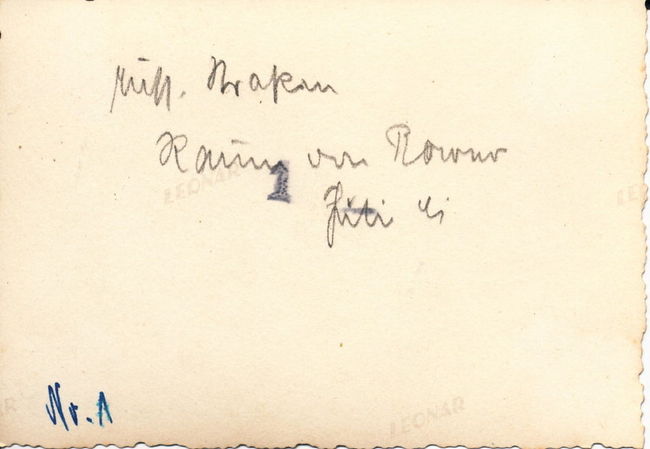 russ. Straßen
Raum von Rowno
1
Juli 41
Nr. 1
LEONAR
LEONAR